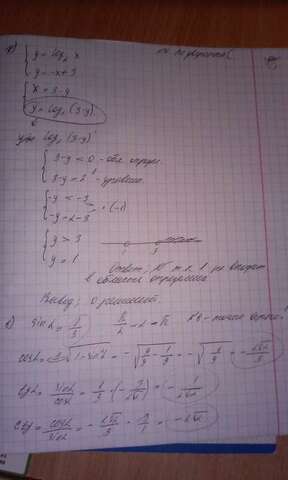 { y = log₂ x
{ y = -x + 3
{ x = 3 - y
{ y = log₂ (3-y)
y = log₂ (3-y)
{ 3-y < 0 - обл. опред.
{ 3-y = 2¹ - уравнение
{ -y < -3
{ -y = 2-3 · (-1)
{ y > 3
{ y = 1
Ответ: ∅ т.к. 1 не входит
в область определения
Вывед: 0 решений.
sin α = 1/3 π/2 < α < π
cos α = ±√(1-sin²α) = -√(9/9 - 1/9) = -√(8/9) = -2√2/3
tg α = sin α / cos α = 1/3 · (-3/2√2) = -1/2√2
ctg = cos α / sin α = -2√2/3 · 3/1 = -2√2